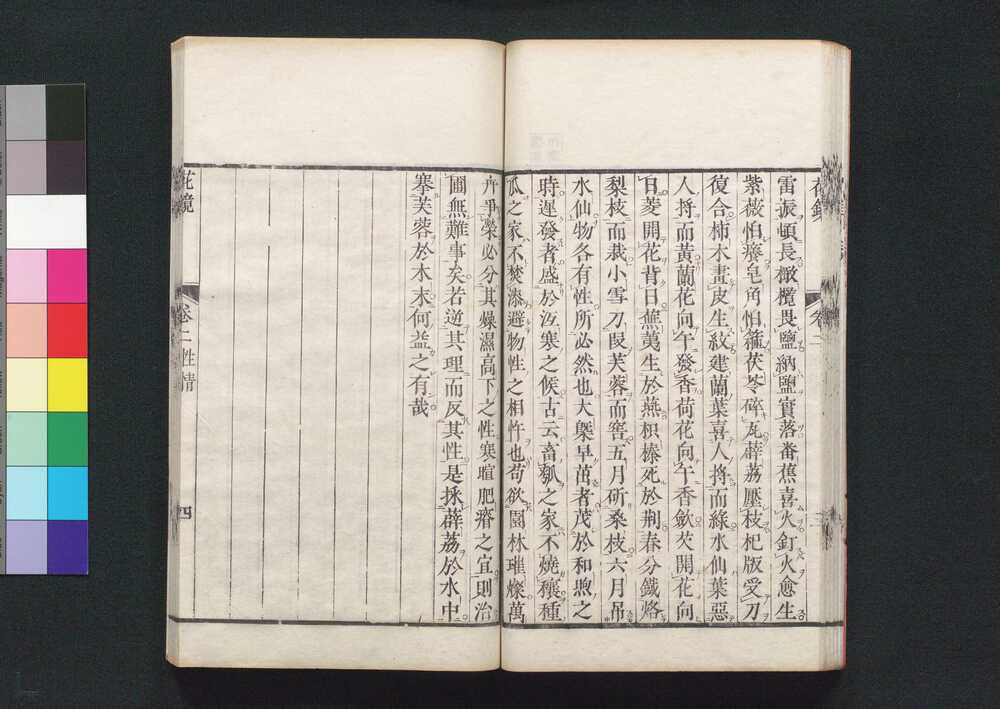 雷振頓長橄欖畏鹽納鹽實落番蕉喜火釘火愈生
紫薇怕癢皂角怕箍茯苓碎瓦薜荔壓枝杞版受刀
復合柿木畫皮生紋建蘭葉喜人捋而綠水仙葉惡
人捋而黃蘭花向午發香荷花向午香斂芡開花向
日菱開花背日蕪荑生於燕枳椽死於荆春分鐵烙
梨枝而栽小雪刀叚芙蓉而窖五月斫桑枝六月吊
水仙物各有性所必然也大槩早苗者茂於和煦之
時遲發者盛於沍寒之候古云畜瓠之家不燒穰種
瓜之家不焚漆避物性之相忤也苟欲園林璀燦萬
卉爭榮必分其燥濕高下之性寒暄肥瘠之宜則治
圃無難事矣若逆其理而反其性是採薜荔於水中
搴芙蓉於木末何益之有哉
花鏡
卷二性情
四